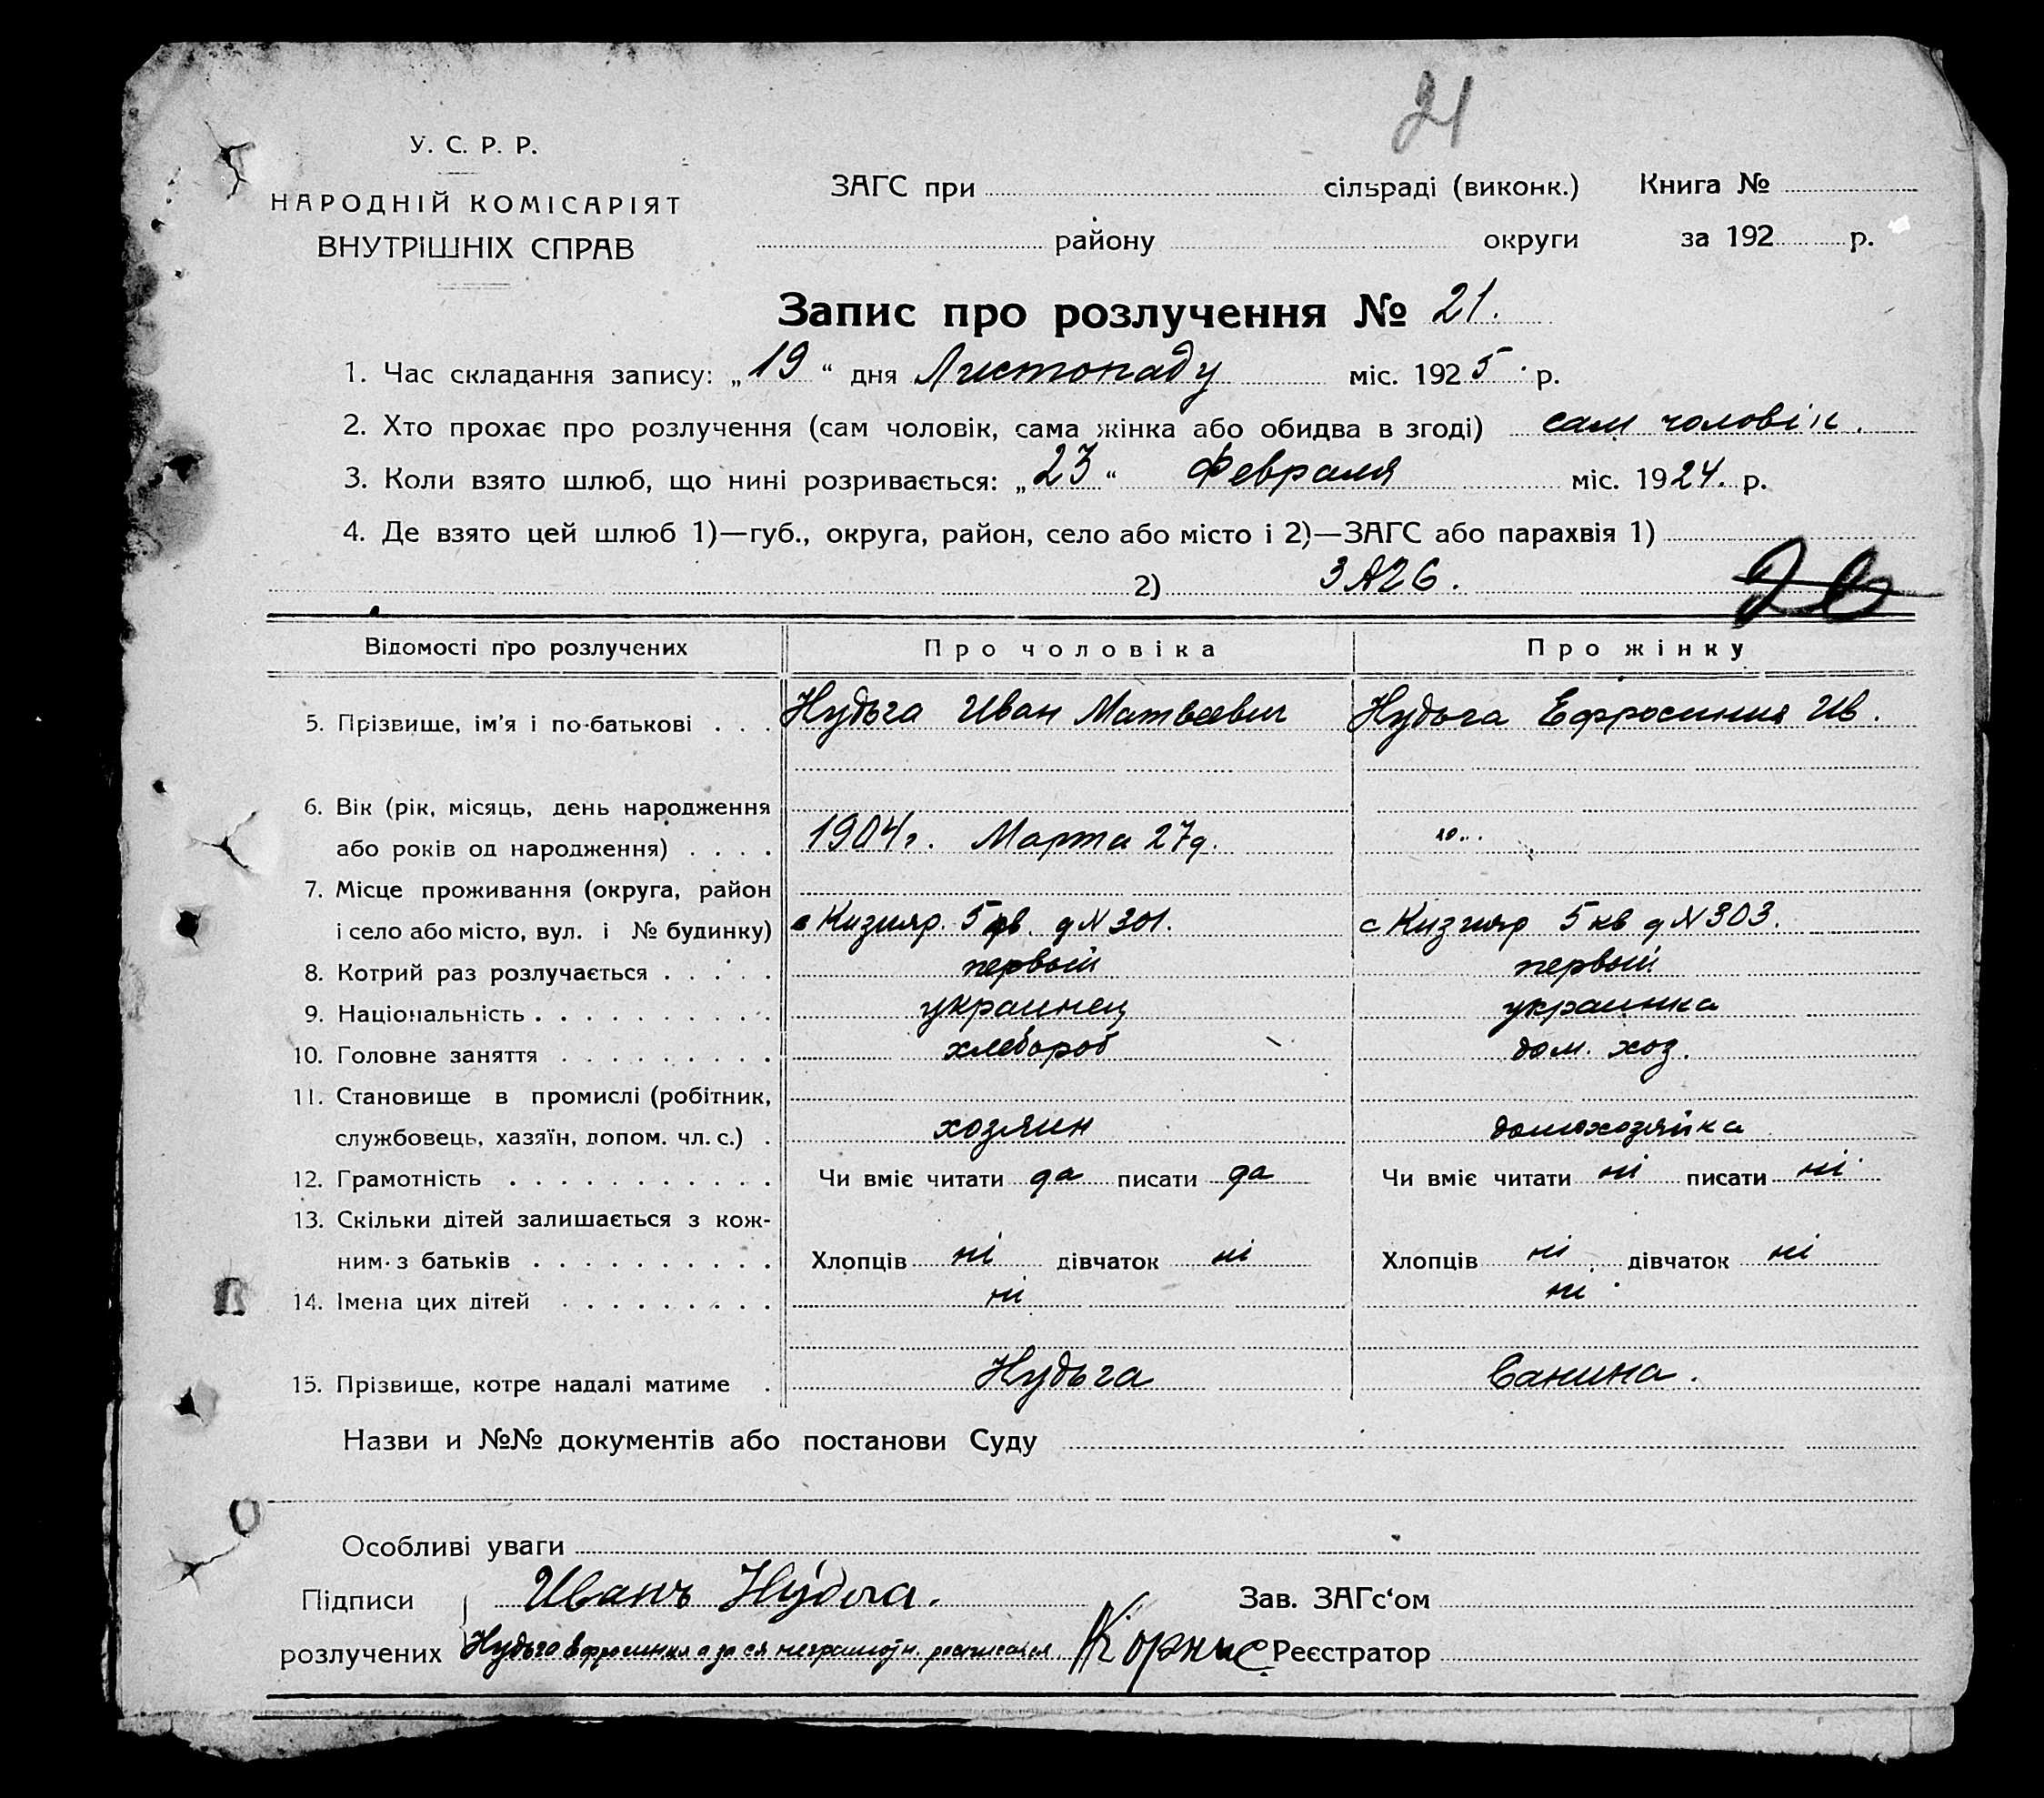 21
У. С. Р. Р.
НАРОДНІЙ КОМІСАРІЯТ
ВНУТРІШНІХ СПРАВ
ЗАГС при сільраді (виконк.) Книга №
району округи за 192 р.
Запис про розлучення № 21.
1. Час складання запису: „19“ дня Листопаду міс. 1925 р.
2. Хто прохає про розлучення (сам чоловік, сама жінка або обидва в згоді) сам чоловік.
3. Коли взято шлюб, що нині розривається: „23“ Февраля міс. 1924. р.
4. Де взято цей шлюб 1)—губ., округа, район, село або місто і 2)—ЗАГС або парахвія 1)
2) ЗАГС.
Відомості про розлучених Про чоловіка Про жінку
5. Прізвище, ім’я і по-батькові . . . Нудьга Иван Матвеевич Нудьга Ефросиния Ив.
6. Вік (рік, місяць, день народження
або років од народження) . . . . 1904 г. Марта 27 д.
7. Місце проживання (округа, район
і село або місто, вул. і № будинку) с Кизияр. 5 кв. д N 301. с Кизияр 5 кв д N 303.
8. Котрий раз розлучається . . . . . первый первый
9. Національність . . . . . . . . . . украинец украинка
10. Головне заняття . . . . . . . . . хлебороб дом. хоз.
11. Становище в промислі (робітник,
службовець, хазяїн, допом. чл. с.) . хозяин домохозяйка
12. Грамотність . . . . . . . . . . . Чи вміє читати да писати да Чи вміє читати ні писати ні
13. Скільки дітей залишається з кож-
ним з батьків . . . . . . . . . . Хлопців ні дівчаток ні Хлопців ні дівчаток ні
14. Імена цих дітей . . . . . . . . . ні ні
15. Прізвище, котре надалі матиме . Нудьга Санина.
Назви и №№ документів або постанови Суду
Особливі уваги
Підписи Иванъ Нудьга. Зав. ЗАГс‘ом
розлучених Нудьга Ефросиния а за ея неграмотн. росписался Реєстратор